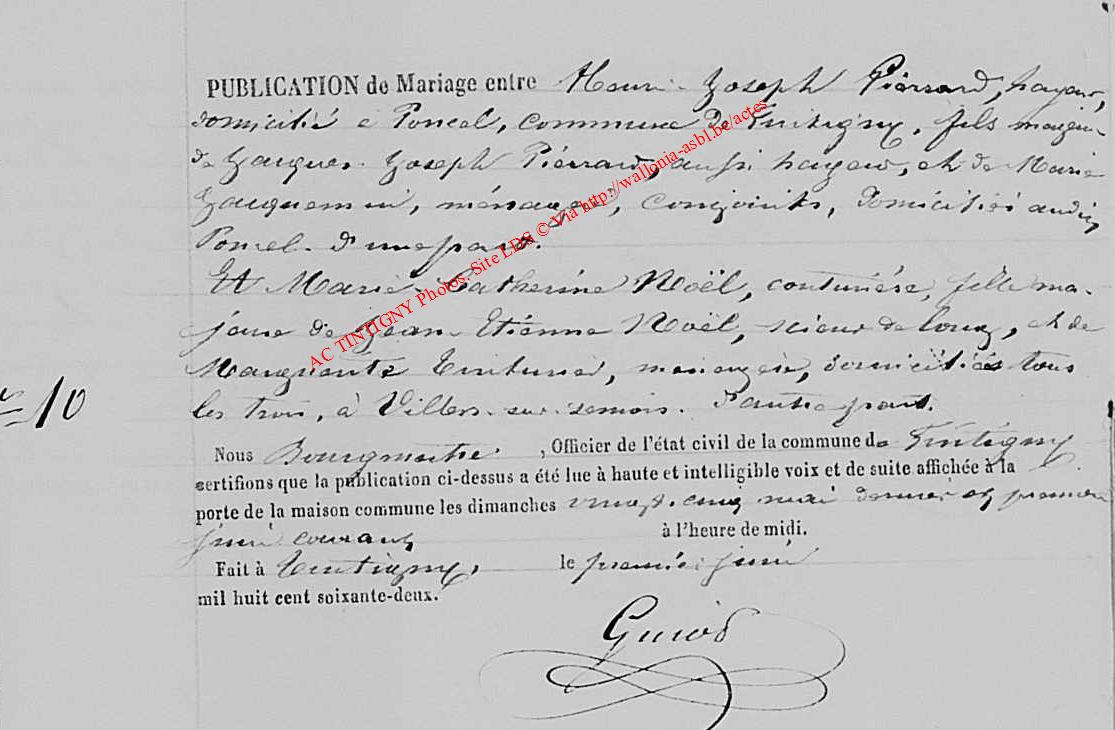 PUBLICATION de Mariage entre Henri Joseph Pierrard,
domicilié à Poncel, commune de Tintigny, fils majeur
de Jacques Joseph Piérrard, aussi et de Marie
Jacquemin, ménagère, conjoints, domiciliés audit
Poncel. d'une part.
Et Marie Catherine Noël, couturière, fille ma-
jeure de Jean Etiénne Noël, scieur de long, et de
Marguerite, menagère, domiciliés tous
les trois, à Villers-sur-semois. D'autre part.
N° 10
Nous Bourgmestre, Officier de l'état civil de la commune de Tintigny
certifions que la publication ci-dessus a été lue à haute et intelligible voix et de suite affichée à la
porte de la maison commune les dimanches vingt-cinq mai dernier et premier
juin courant à l'heure de midi.
Fait à Tintigny, le premier juin
mil huit cent soixante-deux.
AC TINTIGNY Photos: Site LDS © Via http://wallonia-asbl.be/actes